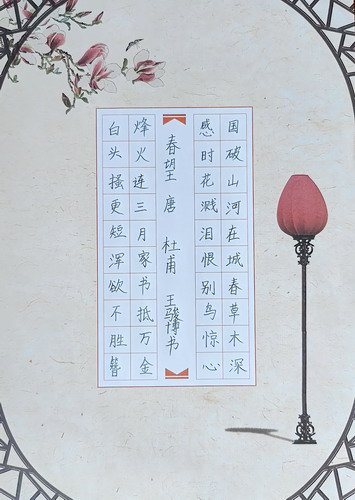 国破山河在城春草木深
感时花溅泪恨别鸟惊心
春望 唐 杜甫 王骏博书
烽火连三月家书抵万金
白头搔更短浑欲不胜簪